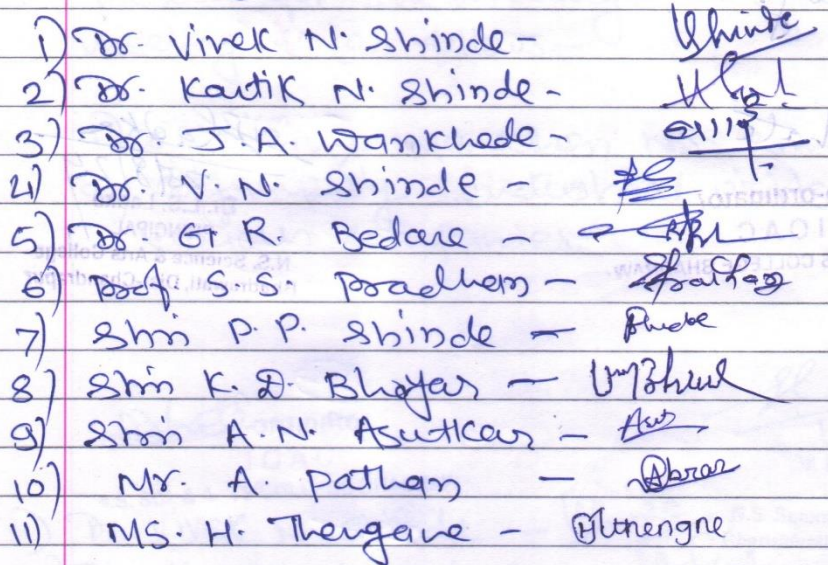 1) Dr. Vivek N. Shinde - Shinde
2) Dr. Kartik N. Shinde -
3) Dr. J. A. Wankhede -
4) Dr. V. N. Shinde -
5) Dr G. R. Bedare -
6) Prof S. S. Pradhan -
7) Shri P. P. Shinde -
8) Shri K. D. Bhoyar -
9) Shri A. N. Asutkar -
10) Mr. A Pathan - Abrar
11) MS. H. Thengane - Hthengne